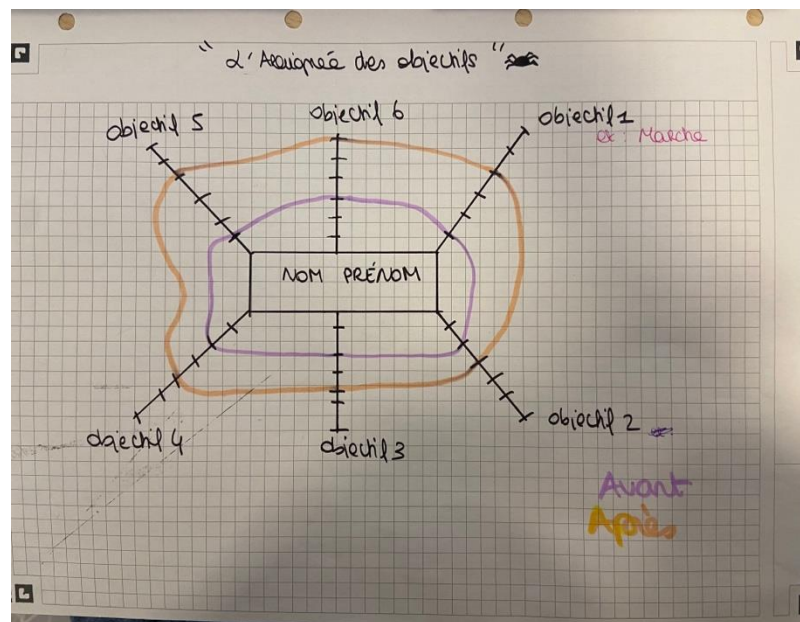 " L'Araignée des objectifs "
objectif 6
objectif 5
objectif 1
ex : Marche
NOM PRÉNOM
objectif 4
objectif 3
objectif 2
Avant
Après